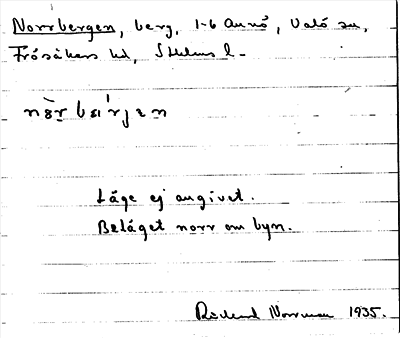 Norrbergen, berg, 1-6 Annö, Valö sn,
Frösåkers hd, Sthlms l.
Läge ej angivet.
Beläget norr om byn.
Rickard Norrman 1935.